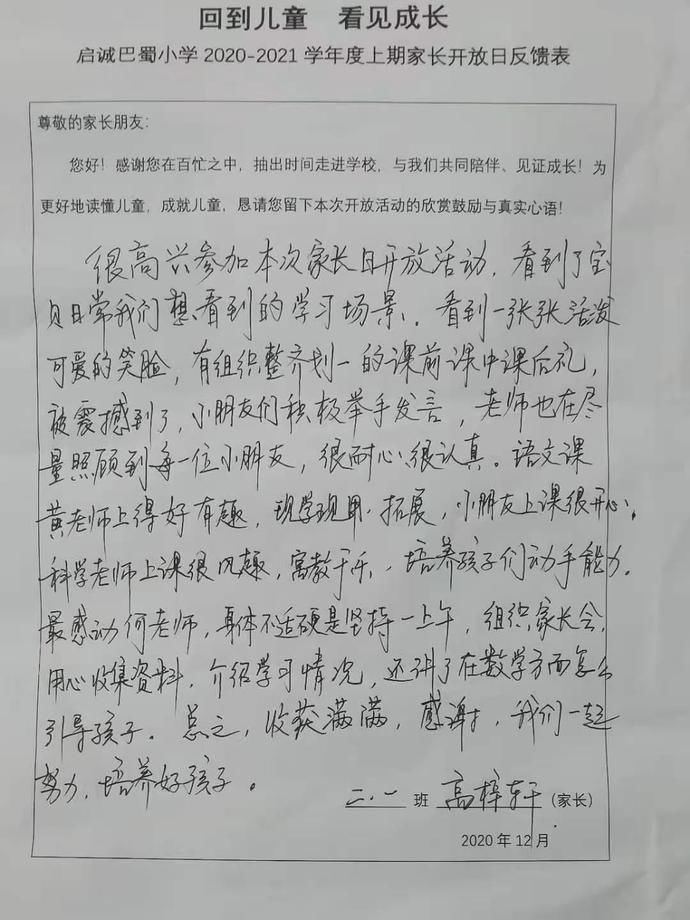 回到儿童 看见成长
启诚巴蜀小学 2020-2021 学年度上期家长开放日反馈表
尊敬的家长朋友：
您好！感谢您在百忙之中，抽出时间走进学校，与我们共同陪伴、见证成长！为
更好地读懂儿童，成就儿童，恳请您留下本次开放活动的欣赏鼓励与真实心语！
很高兴参加本次家长日开放活动，看到了宝
贝日常我们想看到的学习场景。看到一张张活泼
可爱的笑脸，有组织整齐划一的课前课中课后礼，
被震撼到了，小朋友们积极举手发言，老师也在尽
量照顾到每一位小朋友，很耐心很认真。语文课
黄老师上得好有趣，现学现用、拓展，小朋友上课很开心，
科学老师上课很风趣，寓教于乐，培养孩子们动手能力。
最感动何老师，身体不适硬是坚持一上午，组织家长会，
用心收集资料，介绍学习情况，还讲了在数学方面怎么
引导孩子。总之，收获满满，感谢，我们一起
努力，培养好孩子。
二.一 班 高梓轩（家长）
2020 年 12 月